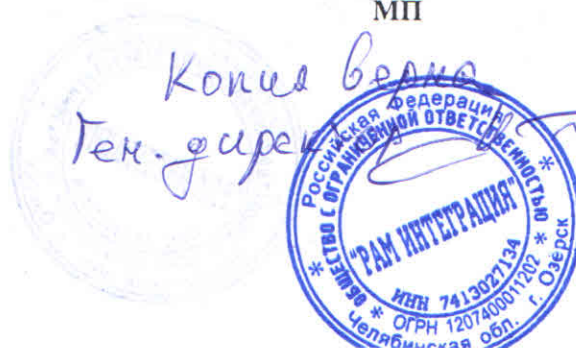 МП
Копия верна
Ген. директ
Российская Федерация
Челябинская обл. г. Озёрск
ОБЩЕСТВО С ОГРАНИЧЕННОЙ ОТВЕТСТВЕННОСТЬЮ
ОГРН 1207400011202
"РАМ ИНТЕГРАЦИЯ"
ИНН 7413027134